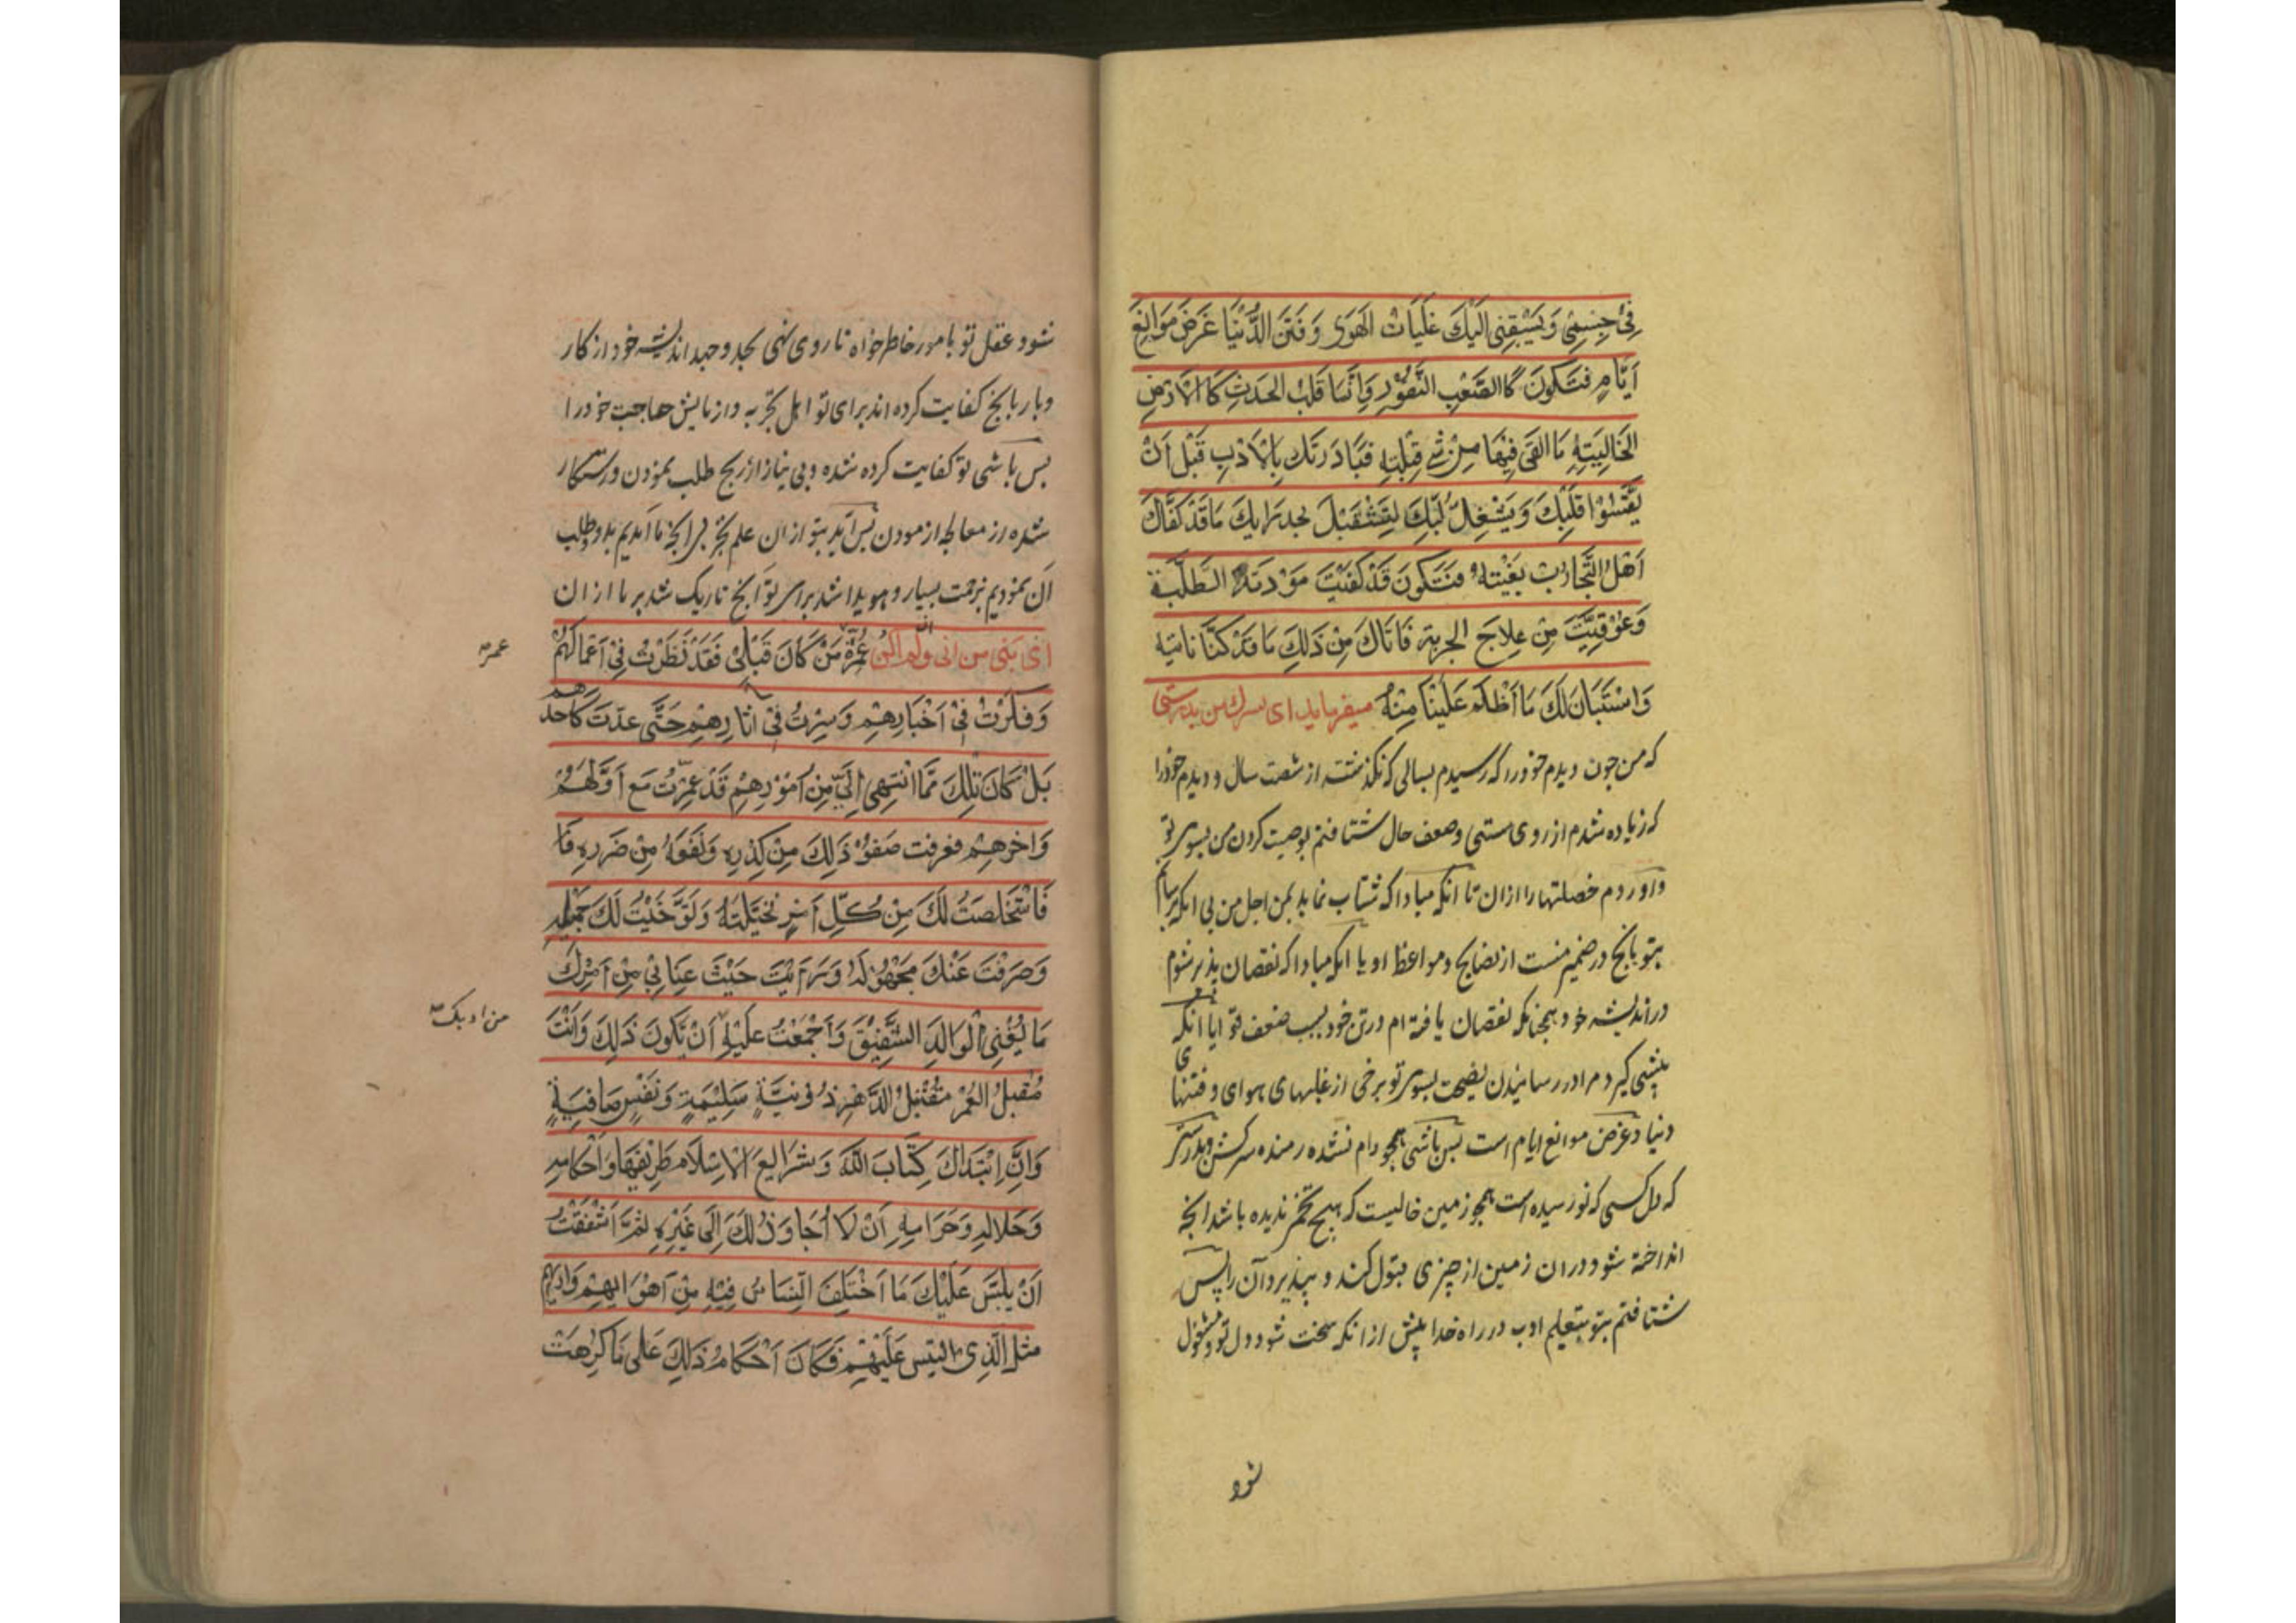 فِىْ جِسْمِىْ وَيَسْبِقَنِى اِلَيْكَ غَلَبَاتُ الْهَوٰى وَفِتَنُ الدُّنْيَا غَرَضَ مَوَانِعَ
اَيَّامٍ فَتَكُوْنَ كَاالصَّعْبِ النَّفُوْرِ وَاِنَّمَا قَلْبُ الْحَدَثِ كَاالْاَرْضِ
الْخَالِيَتِهِ مَا اُلْقِىَ فِيْهَا مِنْ شَىْءٍ قَبِلَتْهِ فَبَادَرَتكَ بِالْاَدَبِ قَبْلَ اَنْ
يَقْسُوْا قَلْبُكَ وَيَشْغِلَ لُبُّكَ لِتَسْتَقْبِلَ بجد رَايكَ مَا قَدْ كَفَاكَ
اَهْلُ التَّجَارُبِ بُغْيَتَهُ فَتَكُوْنَ قَدْ كُفِيْتَ مَوْدنَةَ الطَّلَبَةِ
وَعُوْفِيْتَ مِنْ عِلَاجِ الجربة فَاتَاكَ مِنْ ذَلِكَ مَا قَدْ كُنَّا نَاتيه
وَاسْتَبَانَ لَكَ مَا اَظْلَمَ عَلَيْنَا مِنْهُ ميفرمايد اى پسرك من بدرستى
كه من چون ديدم خود را كه رسيدم بسالى كه نگذشته از شصت سال و ديدم خود را
كه زياده شدم از روى سستى وضعف حال شتافتم بوصيت كردن من بسوى تو
واوردم خصلتها را ازان تا انكه مبادا كه شتاب نمايد بمن اجل من بى انكه برسانم
بتو بانچ در ضمير منست از نصايح ومواعظ او يا انكه مبادا كه نقصان پذير شوم
در انديشه خود همچنانكه نقصان يافته ام در تن خود بسبب ضعف قوى ايا انكه
پيشى گيرد مرا در رسانيدن نصيحت بسوى تو برخى از غلبهاى هواى وفتنها
دنيا وغرض موانع ايام است پس باشى همچو دام نشده رمنده سركش وبدرستى
كه دل كسى كه نورسيده است همچو زمين خاليست كه هيچ تخم نديده باشد انچه
انداخته شود دران زمين از چيزى قبول كند وبپذيرد آن را پس
شتافتم بتو بتعليم ادب در راه خدا پيش ازانكه سخت شود دل تو ومشغول
شود
شود وعقل تو بامور خاطرخواه تا روى نهى بجد وجهد انديشه خود از كار
وبار بانچ كفايت كرده اند براى تو اهل تجربه وازمايش حاجت خود را
پس باشى تو كفايت كرده شده وبى نياز از رنج طلب نمودن ورستكار
شده از معالجه ازمودن پس آيد بتو ازان علم تجربه انچه ما آمديم بدو وطلب
آن نموديم بزحمت بسيار وهويدا شد براى تو آنچ تاريك شد بر ما ازان
اى بنى من انى وان لم اكن عُمِّرْتُ عُمُرَ مَنْ كَانَ قَبْلِىْ فَقَدْ نَظَرْتُ فِىْ اَعْمَالِهُمْ
عمر
وَفَكَرْتُ فِىْ اَخْبَارِهِمْ وَسِرْتُ فِىْ اٰثَارِهِمْ حَتّٰى عدتُ كَاحدهم
بَلْ كَانّ تلك مَمَّا انْتَهٰى اِلَىَّ مِنْ اُمُوْرِهِمْ قَدْ عُمِّرْتُ مَعَ اَوَّلِهِمْ
وَاخرهِمْ فعرفت صَفْوَ ذٰلِكَ مِنْ كَدَرِهِ وَنَفْعَهُ مِنْ ضَرَرِهِ فَا
فَاسْتَخْلَصتُ لَكَ مِنْ كُلِّ اَمْرٍ نَخِيْلَتَهُ وَتَوَخَّيْتُ لَكَ جَمِيْلَهُ
وَصَرَفْتُ عَنْكَ مَجْهُوْلَهُ وَرَاَيْتُ حَيْثُ عنَانِىْ مِنْ اَمْرِكَ
مَا يُغْنِى الْوَالِدَ الشَّفِيْقَ وَاَجْمَعْتُ عَلَيْهِ اَنْ يَكُوْنَ ذٰلِكَ وَاَنْتَ
من ادبك
مُقْبِلُ الْعُمْرِ مُقْتَبِلُ الدَّهْرِ ذُوْ نِيَّةٍ سَلِيْمَةٍ وَنَفْسٍ صَافِيَةٍ
وَاَنِ ابْتَدَاكَ كِتَابَ اللّٰهِ وَشَرَايِعَ الْاِسْلَامِ طَرِيْقِهَا وَاَحْكَامِهِ
وَحَلَالِهِ وَحَرَامِهِ اَنْ لَا اُجَاوِزَ ذٰلِكَ اِلٰى غَيْرِهِ ثُمَّ اَشْفَقْتُ
اَنْ يلْتَبَسَ عَلَيْكَ مَا اخْتَلَفَ النَّاسُ فِيْهِ مِنْ اَهْوَايِهِمْ وَارائهم
مثل الَّذِى التبس عَلَيْهِمْ فَكَانَ اَحْكَامُ ذٰلِكَ عَلٰى مَا كَرِهْتُ